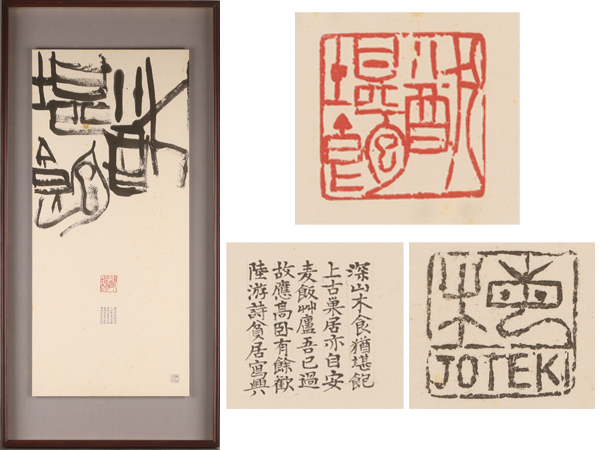 猶堪飽
猶堪飽
深山木食猶堪飽
上古巢居亦自安
麦飯艸廬吾已過
故應高卧有餘歡
陸游詩貧居寫興
梅
JOTEKI